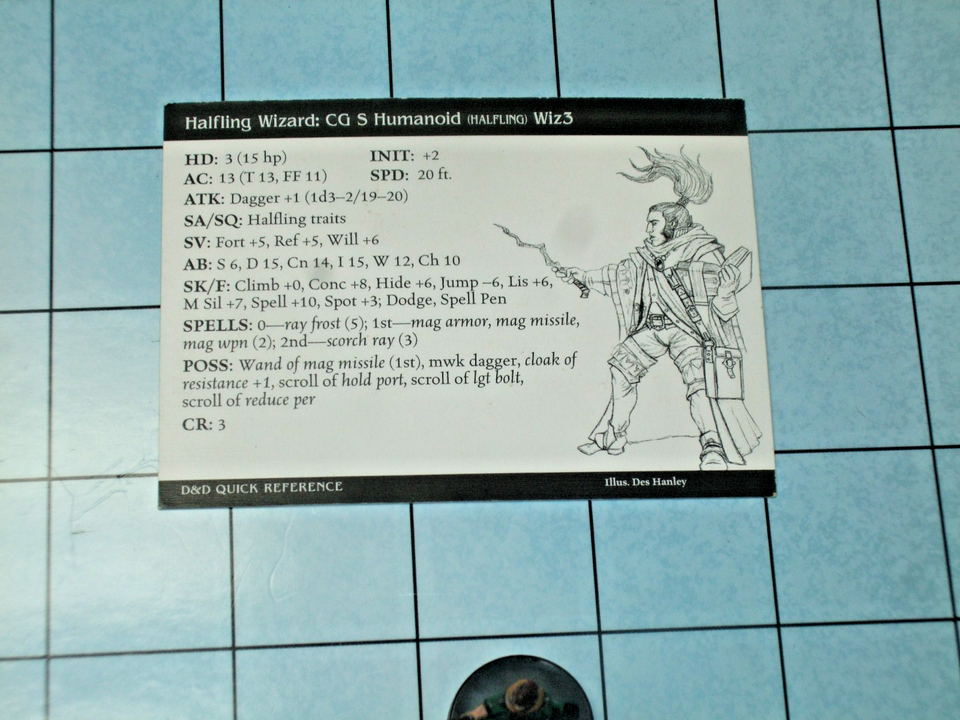 Halfling Wizard: CG S Humanoid (HALFLING) Wiz3
HD: 3 (15 hp) INIT: +2
AC: 13 (T 13, FF 11) SPD: 20 ft.
ATK: Dagger +1 (1d3–2/19–20)
SA/SQ: Halfling traits
SV: Fort +5, Ref +5, Will +6
AB: S 6, D 15, Cn 14, I 15, W 12, Ch 10
SK/F: Climb +0, Conc +8, Hide +6, Jump –6, Lis +6,
M Sil +7, Spell +10, Spot +3; Dodge, Spell Pen
SPELLS: 0—ray frost (5); 1st—mag armor, mag missile,
mag wpn (2); 2nd—scorch ray (3)
POSS: Wand of mag missile (1st), mwk dagger, cloak of
resistance +1, scroll of hold port, scroll of lgt bolt,
scroll of reduce per
CR: 3
D&D QUICK REFERENCE
Illus. Des Hanley